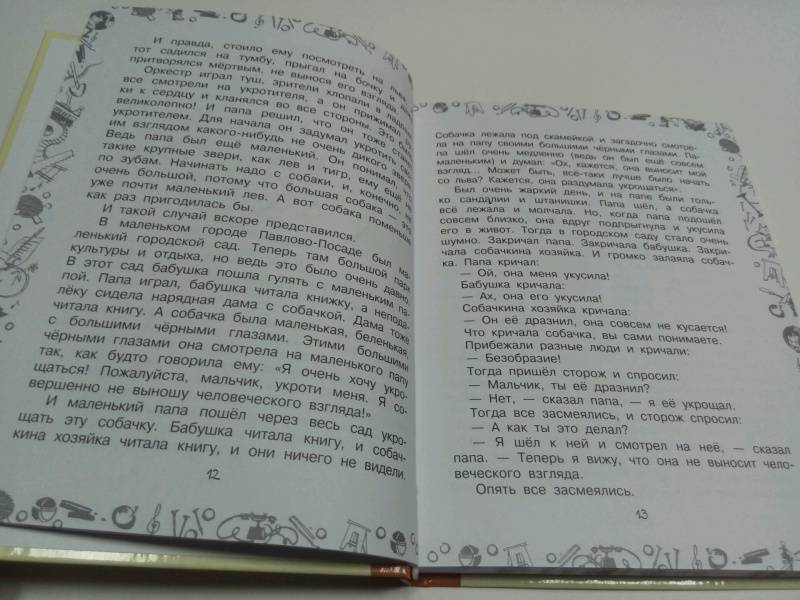 И правда, стоило ему посмотреть на льва,
тот садился на тумбу, прыгал на бочку и даже
притворялся мёртвым, не вынося его взгляда.
Оркестр играл туш, зрители хлопали в ладоши,
все смотрели на укротителя, а он прижимал ру-
ки к сердцу и кланялся во все стороны. Это было
великолепно! И папа решил, что он тоже станет
укротителем. Для начала он задумал укротить сво-
им взглядом какого-нибудь не очень дикого зверя.
Ведь папа был ещё маленький. Он понимал, что
такие крупные звери, как лев и тигр, ему ещё не
по зубам. Начинать надо с собаки, и, конечно, не
очень большой, потому что большая собака — это
уже почти маленький лев. А вот собака поменьше
как раз пригодилась бы.
И такой случай вскоре представился.
В маленьком городе Павлово-Посаде был ма-
ленький городской сад. Теперь там большой парк
культуры и отдыха, но ведь это было очень давно.
В этот сад бабушка пошла гулять с маленьким па-
пой. Папа играл, бабушка читала книжку, а непода-
лёку сидела нарядная дама с собачкой. Дама тоже
читала книгу. А собачка была маленькая, беленькая,
с большими чёрными глазами. Этими большими
чёрными глазами она смотрела на маленького папу
так, как будто говорила ему: «Я очень хочу укро-
щаться! Пожалуйста, мальчик, укроти меня. Я со-
вершенно не выношу человеческого взгляда!»
И маленький папа пошёл через весь сад укро-
щать эту собачку. Бабушка читала книгу, и собач-
кина хозяйка читала книгу, и они ничего не видели.
12
Собачка лежала под скамейкой и загадочно смотре-
ла на папу своими большими чёрными глазами. Па-
па шёл очень медленно (ведь он был ещё совсем
маленьким) и думал: «Ох, кажется, она выносит мой
взгляд... Может быть, всё-таки лучше было начать
со льва? Кажется, она раздумала укрощаться».
Был очень жаркий день, и на папе были толь-
ко сандалии и штанишки. Папа шёл, а собачка
всё лежала и молчала. Но, когда папа подошёл
совсем близко, она вдруг подпрыгнула и укусила
его в живот. Тогда в городском саду стало очень
шумно. Закричал папа. Закричала бабушка. Закри-
чала собачкина хозяйка. И громко залаяла собач-
ка. Папа кричал:
— Ой, она меня укусила!
Бабушка кричала:
— Ах, она его укусила!
Собачкина хозяйка кричала:
— Он её дразнил, она совсем не кусается!
Что кричала собачка, вы сами понимаете.
Прибежали разные люди и кричали:
— Безобразие!
Тогда пришёл сторож и спросил:
— Мальчик, ты её дразнил?
— Нет, — сказал папа, — я её укрощал.
Тогда все засмеялись, и сторож спросил:
— А как ты это делал?
— Я шёл к ней и смотрел на неё, — сказал
папа. — Теперь я вижу, что она не выносит чело-
веческого взгляда.
Опять все засмеялись.
13